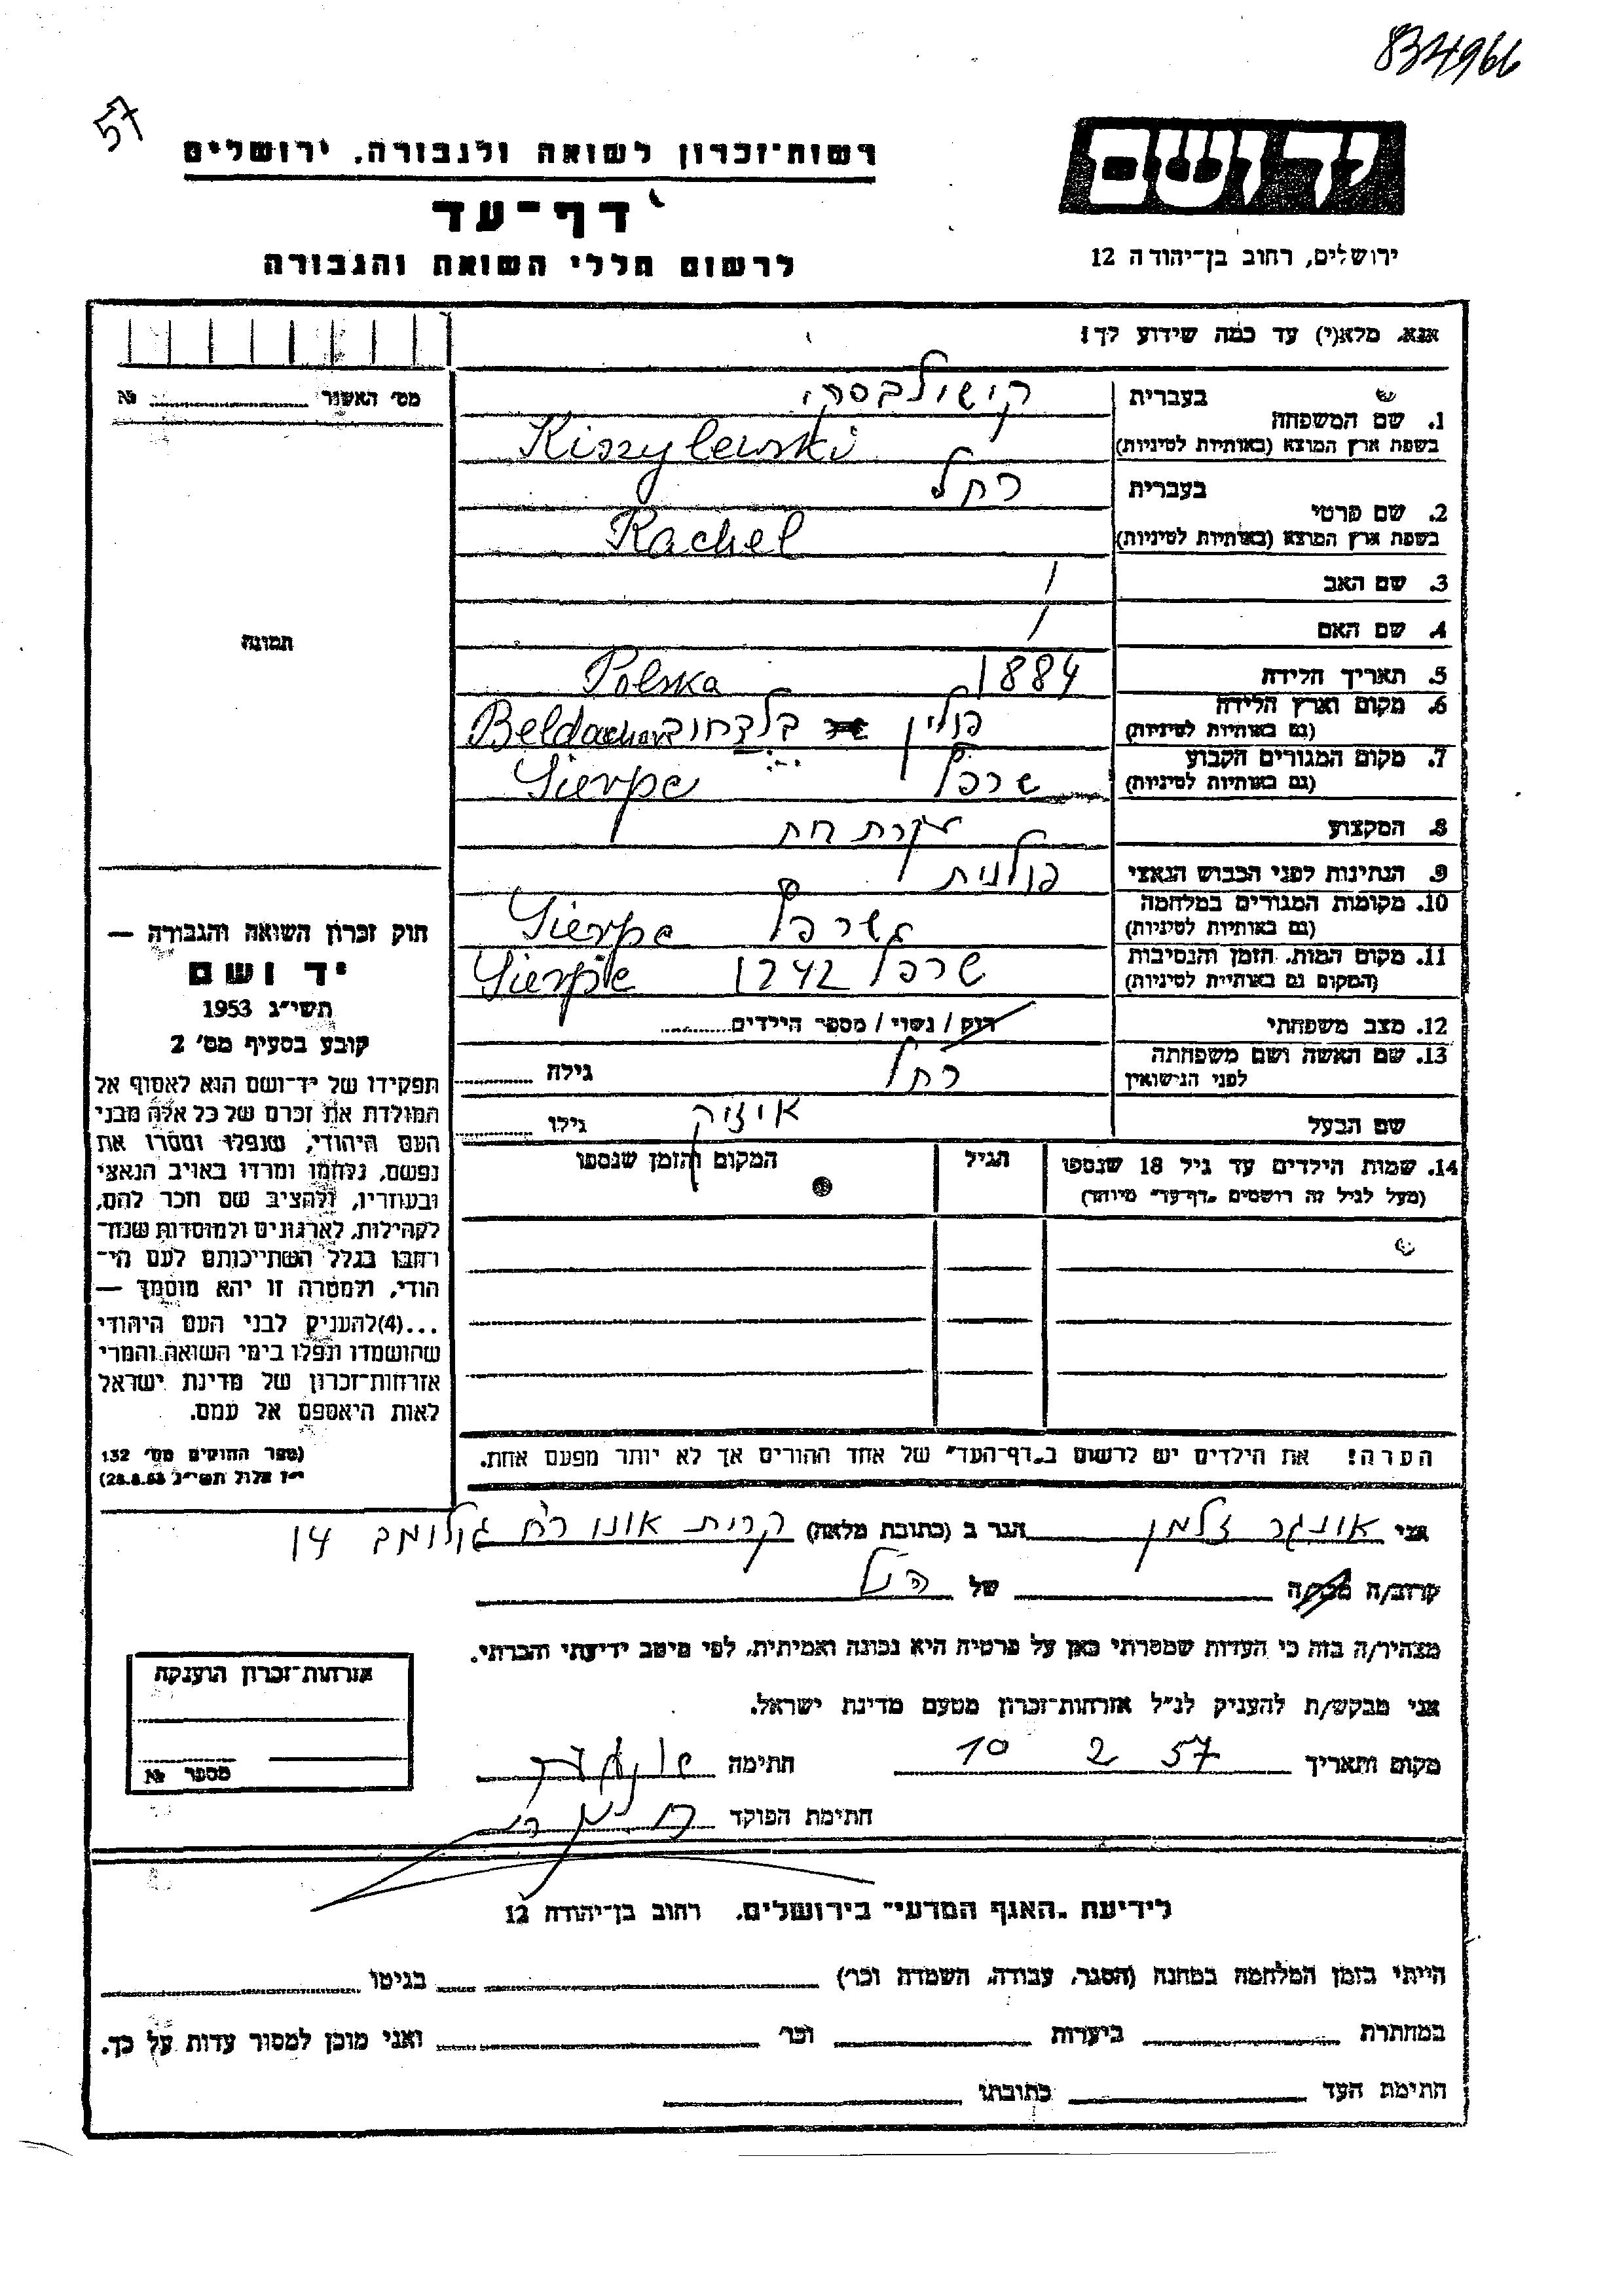 834966
57
יד ושם
ירושלים, רחוב בן־יהודה 12
רשות־זכרון לשואה ולגבורה, ירושלים
דף־עד
לרשום חללי השואה והגבורה
אנא, מלא(י) עד כמה שידוע לך!
מס' האשור ........ №
1. שם המשפחה
בעברית קישילבסקי
בשפת ארץ המוצא (באותיות לטיניות) Kiszylewski
2. שם פרטי
בעברית רחל
בשפת ארץ המוצא (באותיות לטיניות) Rachel
3. שם האב /
4. שם האם /
תמונה
5. תאריך הלידה 1884 Polska
6. מקום וארץ הלידה
(גם באותיות לטיניות) פולין
7. מקום המגורים הקבוע
(גם באותיות לטיניות) שרפץ Sierpc
8. המקצוע עקרת בית
9. הנתינות לפני הכבוש הנאצי פולנית
10. מקומות המגורים במלחמה
(גם באותיות לטיניות) שרפץ Sierpc
11. מקום המות, הזמן והנסיבות
(המקום גם באותיות לטיניות) שרפץ 1942 Sierpc
12. מצב משפחתי רוק / נשוי / מספר הילדים........
13. שם האשה ושם משפחתה
לפני הנישואין רחל גילה ........
שם הבעל איזיק גילו ........
14. שמות הילדים עד גיל 18 שנספו
(מעל לגיל זה רושמים "דף־עד" מיוחד)
הגיל
המקום והזמן שנספו
הערה! את הילדים יש לרשום ב"דף־העד" של אחד ההורים אך לא יותר מפעם אחת.
חוק זכרון השואה והגבורה —
יד ושם
תשי"ג 1953
קובע בסעיף מס' 2
תפקידו של יד־ושם הוא לאסוף אל
המולדת את זכרם של כל אלה מבני
העם היהודי, שנפלו ומסרו את
נפשם, נלחמו ומרדו באויב הנאצי
ובעוזריו, ולהציב שם וזכר להם,
לקהילות, לארגונים ולמוסדות שנח־
רבו בגלל השתייכותם לעם הי־
הודי, ולמטרה זו יהא מוסמך —
...(4)להעניק לבני העם היהודי
שהושמדו ונפלו בימי השואה והמרי
אזרחות־זכרון של מדינת ישראל
לאות היאספם אל עמם.
(ספר החוקים מס' 132
י"ז אלול תשי"ג 28.8.53)
אני אונגר זלמן הגר ב (כתובת מלאה) קרית אונו רח' גולומב 14
קרוב/ה מכר/ה של הנ"ל
מצהיר/ה בזה כי העדות שמסרתי כאן על פרטיה היא נכונה ואמיתית, לפי מיטב ידיעתי והכרתי.
אני מבקש/ת להעניק לנ"ל אזרחות־זכרון מטעם מדינת ישראל.
מקום ותאריך 10 2 57 חתימה
חתימת הפוקד
אזרחות־זכרון הוענקה
מספר №
לידיעת "האגף המדעי" בירושלים, רחוב בן־יהודה 12
הייתי בזמן המלחמה במחנה (הסגר, עבודה, השמדה וכו') בגיטו
במחתרת ביערות וכו' ואני מוכן למסור עדות על כך.
חתימת העד כתובתו